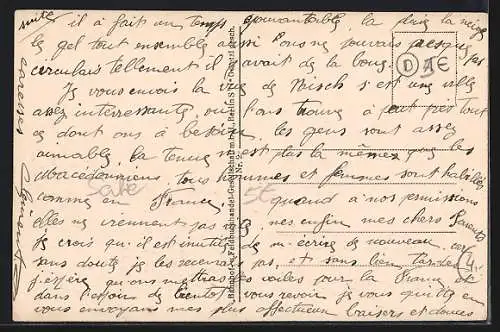 suite
il a fait un temps epouvantable la pluie la neige
le gel tout ensemble aussi l'on ne pouvais presque pas
circulais tellement il avait de la boue
Je vous envois la vue de Nisch s'est une ville
assez interressante, où l'on trouve à peut près tout
ce dont ons à besoin, les gens sont assez
aimables, la tenue n'est plus la même que les
Macédoniens, tous hommes et femmes sont habillés
comme en France, quand a nos permissions
elles ne viennent pas vite mes enfin mes chers Parents
Je crois qu'il est inutile de m'écrire de nouveau, car
sans doute je les recevrais pas, et sans bien tarder
j'espère qu'ons mettras les voiles pour la France et
dans l'espoir de bientôt vous revoir je vous quitte en
vous envoyant mes plus affectueux baisers et douces
caresses
Bahnhof- u. Feldbuchhandel-Gesellschaft m. b. H., Berlin
Nr. 2
D